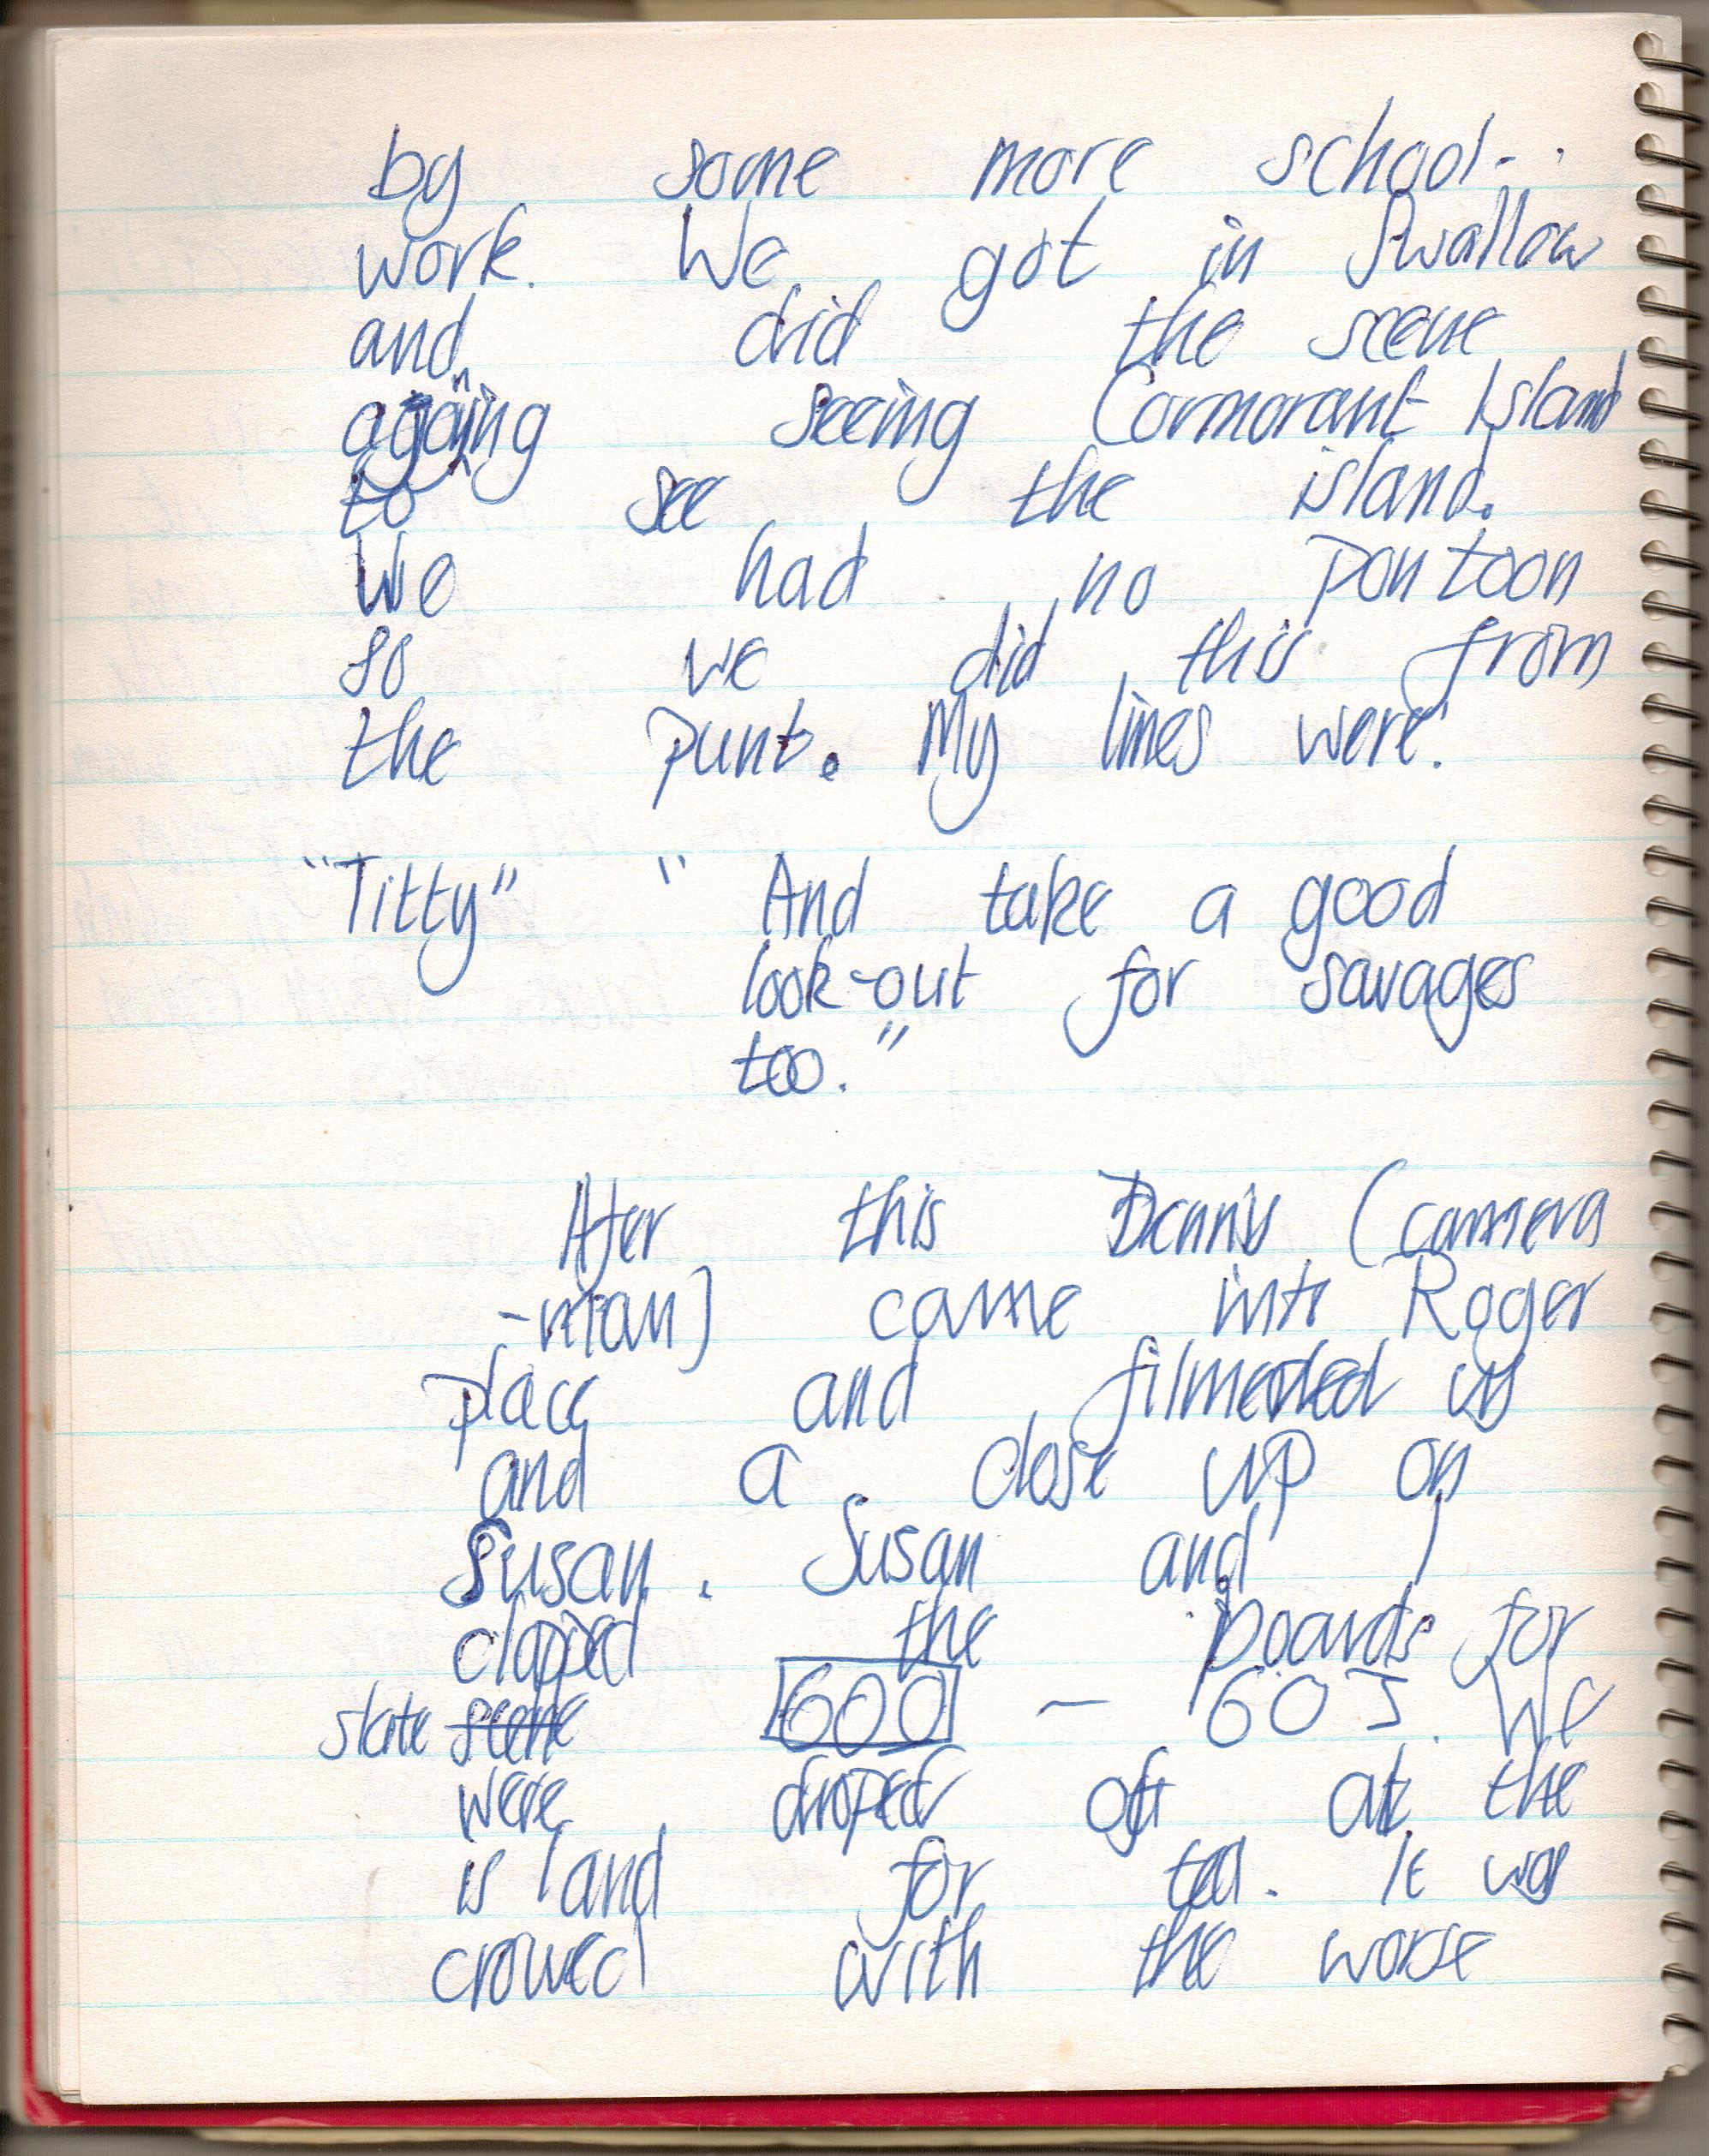 by some more school-
work. We got in Swallow
and did the scene
againg seeing Cormorant Island
to see the island.
We had no pontoon
so we did this from
the punt. My lines were:
"Titty" " And take a good
look-out for savages
too."
After this Dennis (camera
-man) came into Roger
place and filmeded us
and a close up on
Susan. Susan and I
claped the boards for
slate scene 600 - 603. We
were droped off at the
island for tea. It was
crowed with the worse